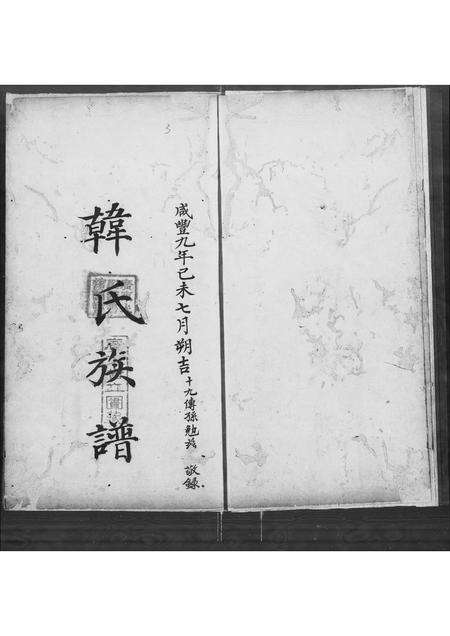 咸豐九年己未七月朔吉十九傳孫勉茲 敬錄
韓氏族譜
3